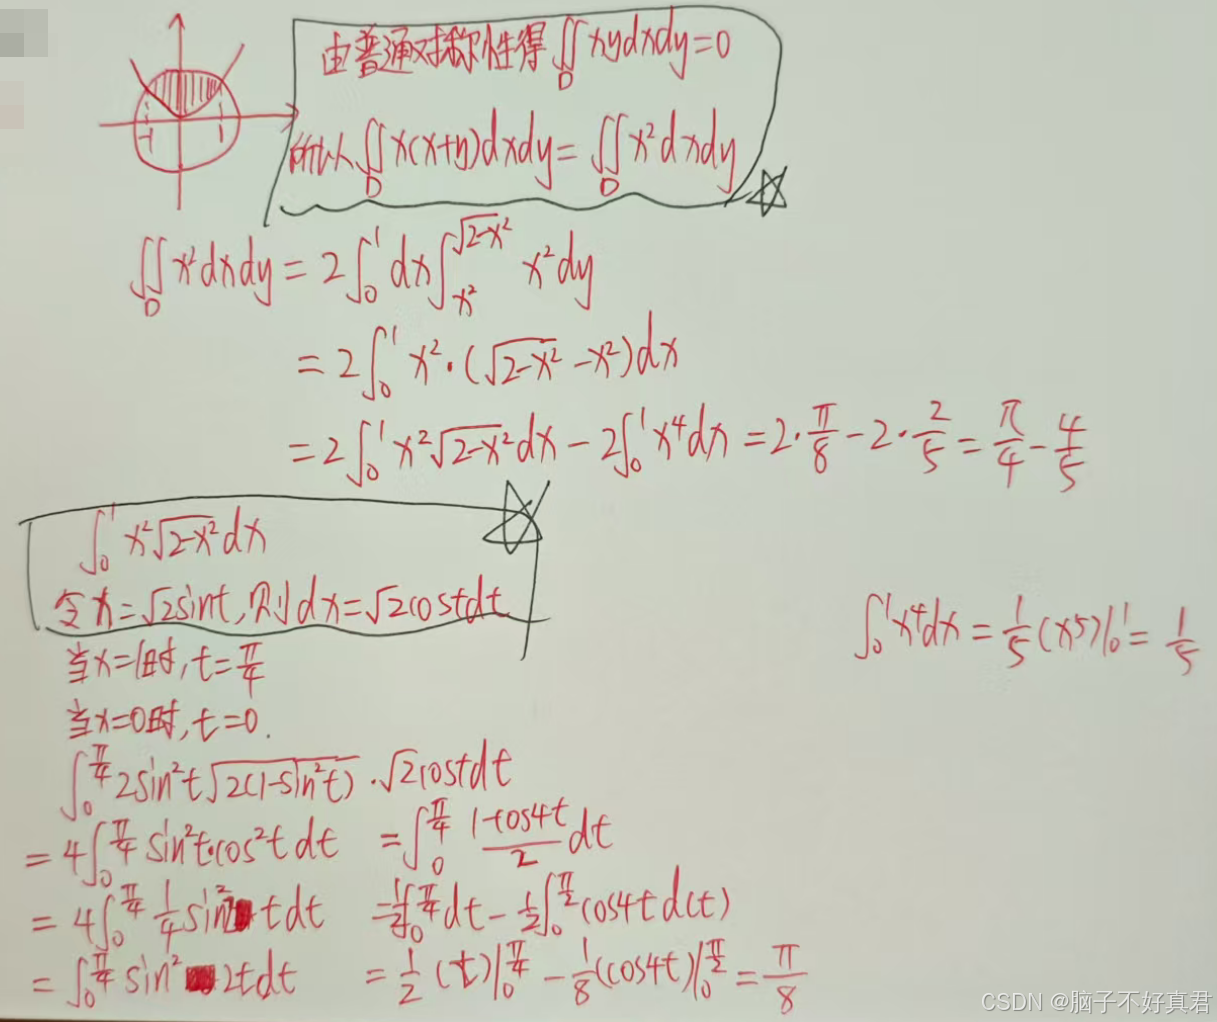 由普通对称性得∬_D xydxdy=0
所以∬_D x(x+y)dxdy=∬_D x²dxdy
-1 1
∬_D x²dxdy=2∫_0^1 dx∫_{x²}^{√(2-x²)} x²dy
=2∫_0^1 x²·(√(2-x²)-x²)dx
=2∫_0^1 x²√(2-x²)dx-2∫_0^1 x⁴dx=2·π/8-2·2/5=π/4-4/5
∫_0^1 x²√(2-x²)dx
令x=√2sint,则dx=√2costdt
当x=1时,t=π/4
当x=0时,t=0.
∫_0^{π/4} 2sin²t√(2(1-sin²t))·√2costdt
=4∫_0^{π/4} sin²t·cos²tdt
=4∫_0^{π/4} 1/4 sin² tdt
=∫_0^{π/4} sin² 2tdt
=∫_0^{π/4} (1-cos4t)/2 dt
=1/2∫_0^{π/4} dt-1/2∫_0^{π/2} cos4td(t)
=1/2(t)|_0^{π/4}-1/8(cos4t)|_0^{π/2}=π/8
∫_0^1 x⁴dx=1/5(x5)|_0^1=1/5
CSDN @脑子不好真君